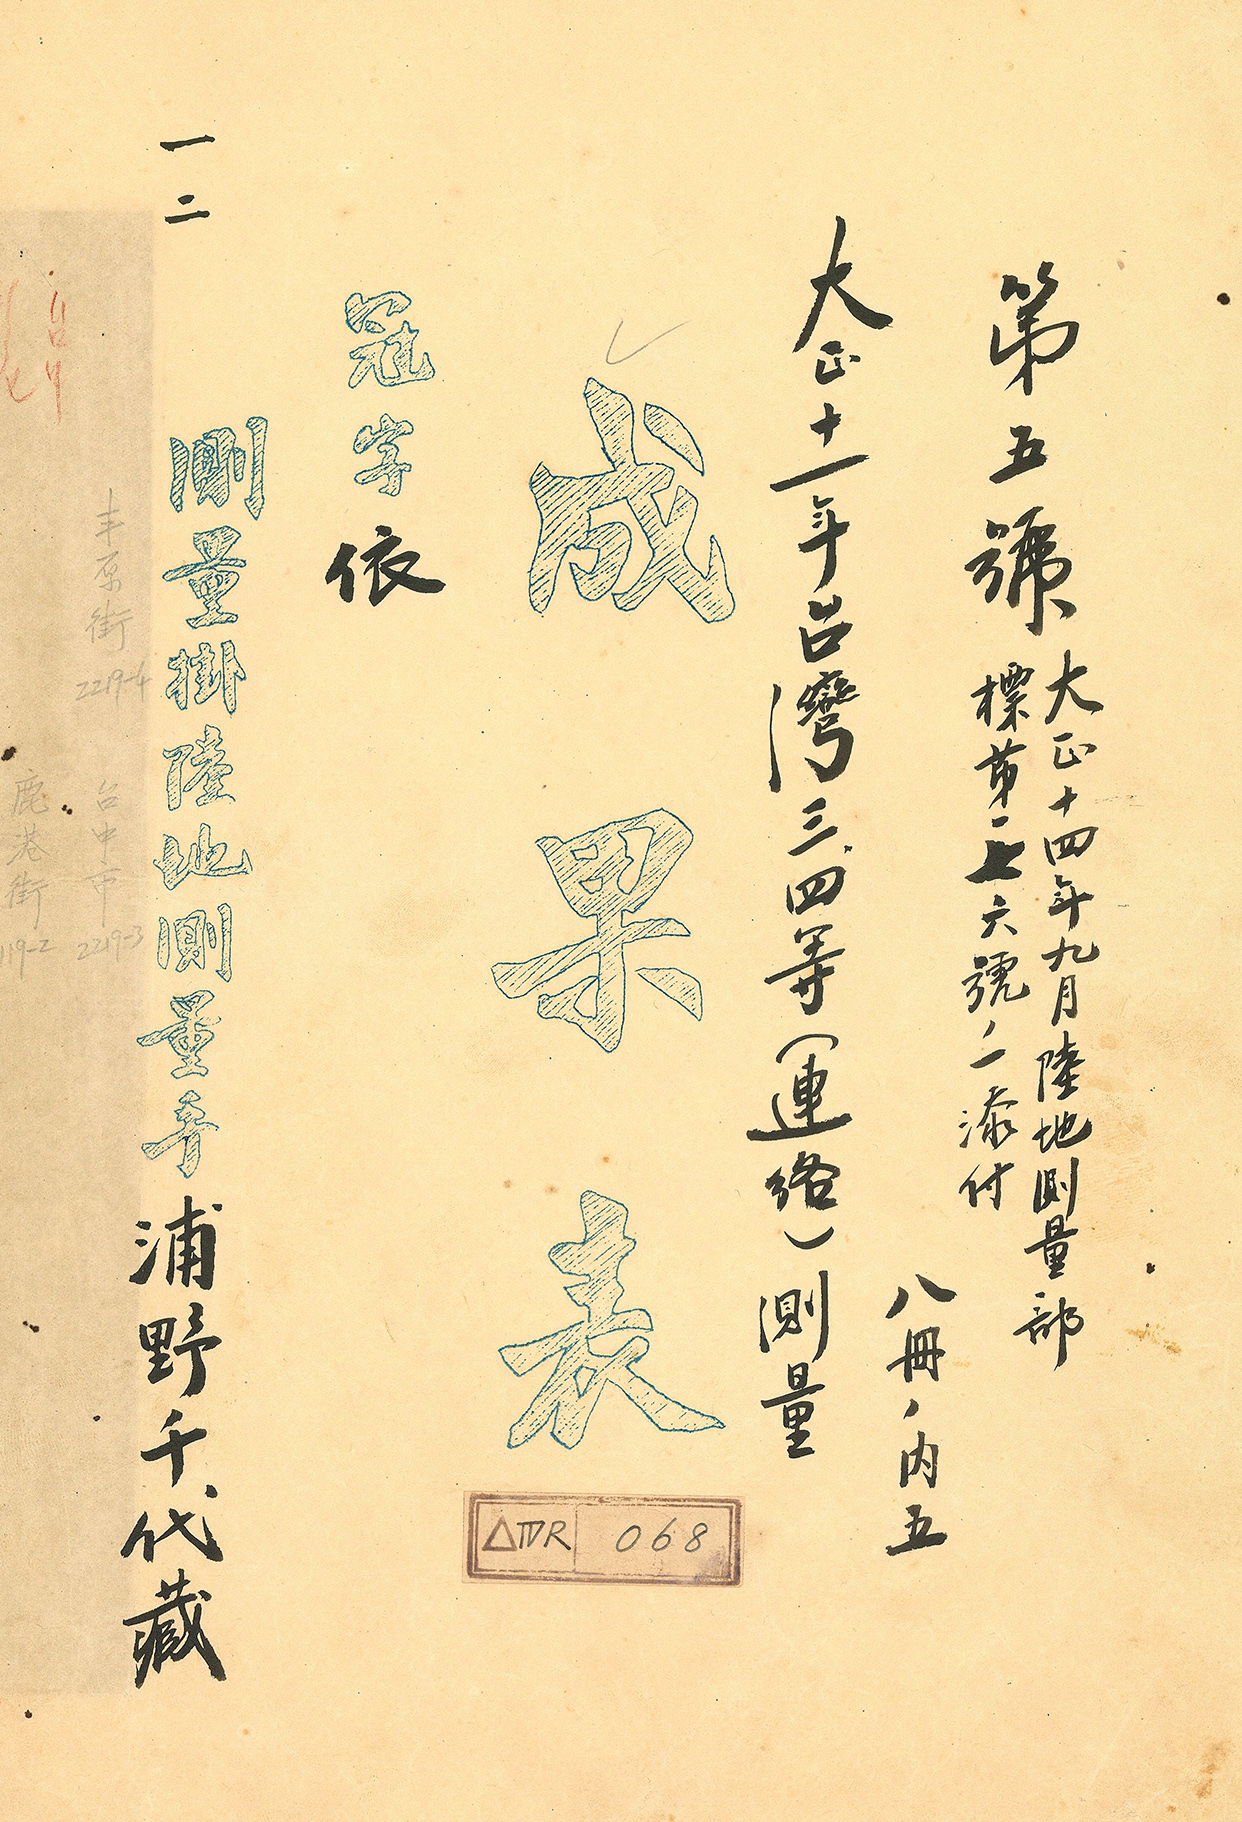 第五號
大正十四年九月陸地測量部
標第一七六號ノ一添付
八冊ノ内五
大正十一年台灣三、四等(連絡)測量
成果表
冠字依
測量掛陸地測量手浦野千代藏
一二
丰原街 2219-4
台中市 2219-3
鹿港街
119-2
△ⅣR 068